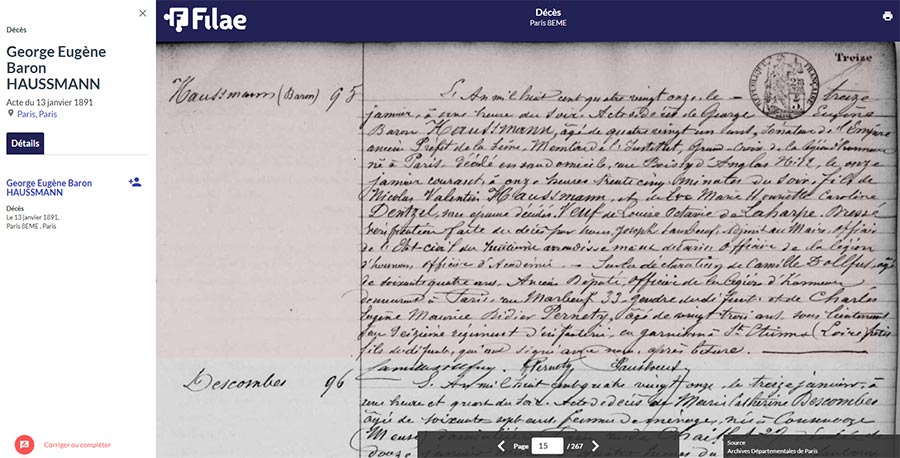 Décès
George Eugène
Baron
HAUSSMANN
Acte du 13 janvier 1891
Paris, Paris
Détails
George Eugène Baron
HAUSSMANN
Décès
Le 13 janvier 1891,
Paris 8EME , Paris
Corriger ou compléter
Filae
Décès
Paris 8EME
Treize
RÉPUBLIQUE FRANÇAISE
Haussmann (Baron) 95
L'An mil huit cent quatre vingt onze, le treize
janvier, à une heure du soir. Acte de Décès de George Eugène
Baron Haussmann, âgé de quatre vingt un ans, Sénateur de l'Empire
ancien Préfet de la Seine, Membre de l'Institut, Grand Croix de la légion d'honneur
né à Paris. Décédé en son domicile, rue Boissy d'Anglas N° 12, le onze
janvier courant, à onze heures trente cinq minutes du soir, fils de
Nicolas Valentin Haussmann, et de Eve Marie Henriette Caroline
Dentzel, son épouse décédés. Veuf de Louise Octavie de Laharpe. Dressé
vérification faite du décès par nous, Joseph adjoint au Maire, officier
de l'Etat civil du huitième arrondissement de Paris Officier de la légion
d'honneur, officier d'Académie. Sur la déclaration de Camille Dollfus, âgé
de soixante quatre ans, Ancien Député, Officier de la légion d'honneur
demeurant à Paris, rue Marbeuf 33, Gendre du défunt et de Charles
Eugène Maurice Didier Pernety, âgé de vingt trois ans, sous lieutenant
au seizième régiment d'infanterie, en garnison à St Etienne (Loire) petit
fils du défunt, qui ont signé avec nous, après lecture.
Pernety
Descombes 96
L'An mil huit cent quatre vingt onze, le treize janvier, à
une heure et quart du soir. Acte de décès de Marie Catherine Descombes
âgée de soixante sept ans, femme de ménage, née à
Meuse
douze
Page 15 / 267
Source
Archives Départementales de Paris